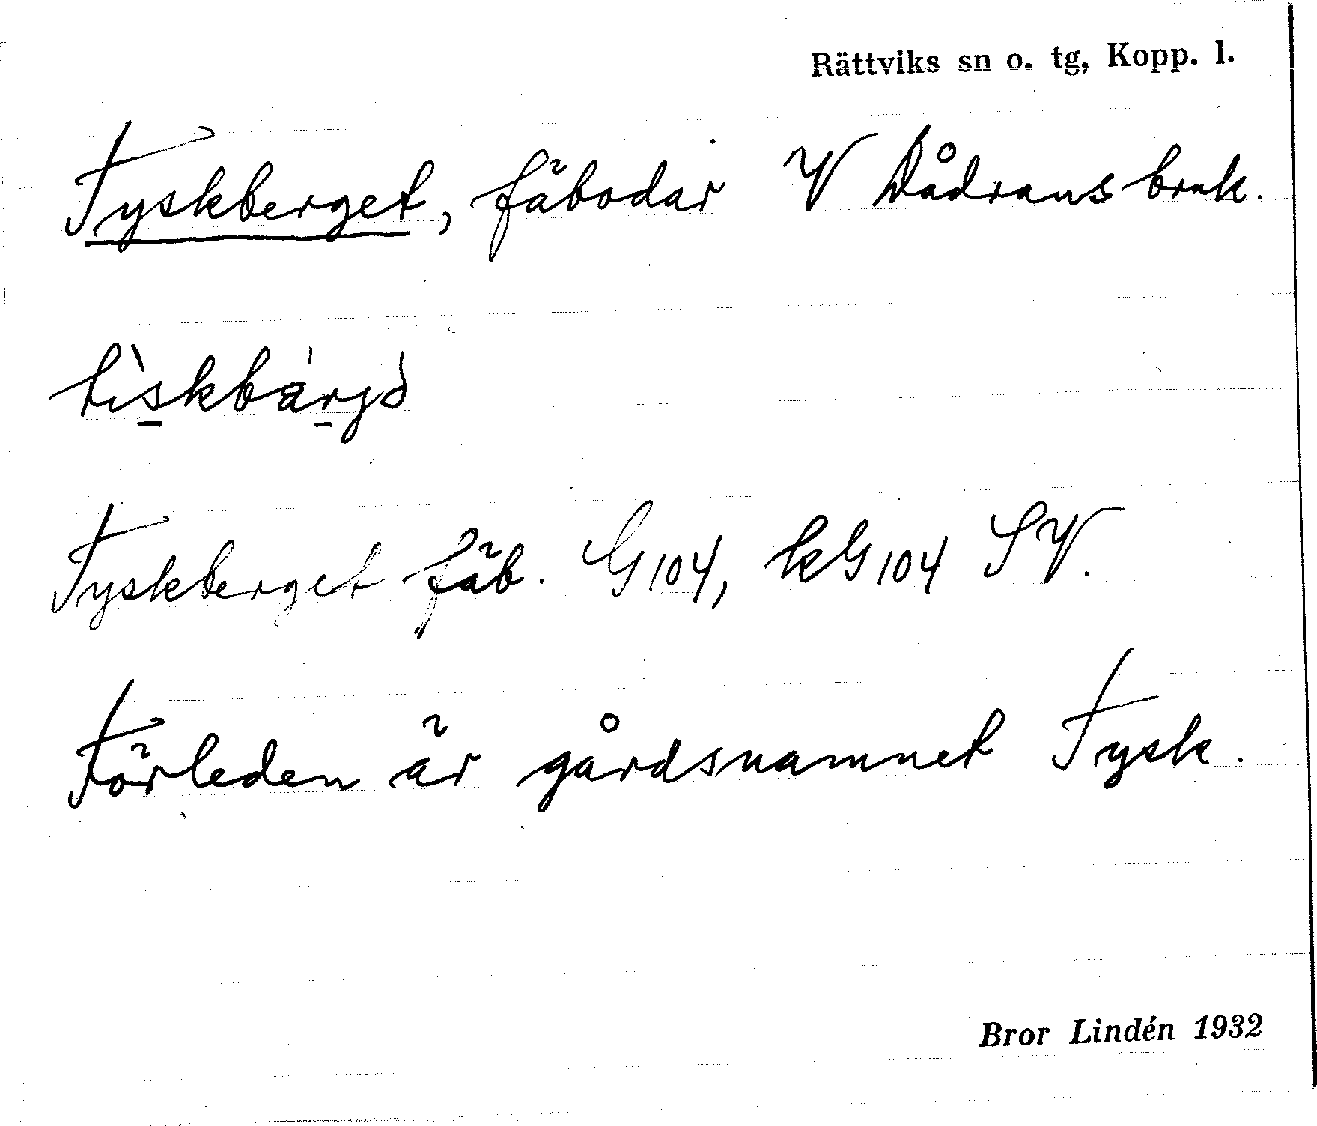 Rättviks sn o. tg, Kopp. l.
Tyskberget, fäbodar V Dådrans bruk.
Tyskberget fäb. G104, kG104 SV.
Förleden är gårdsnamnet Tysk.
Bror Lindén 1932